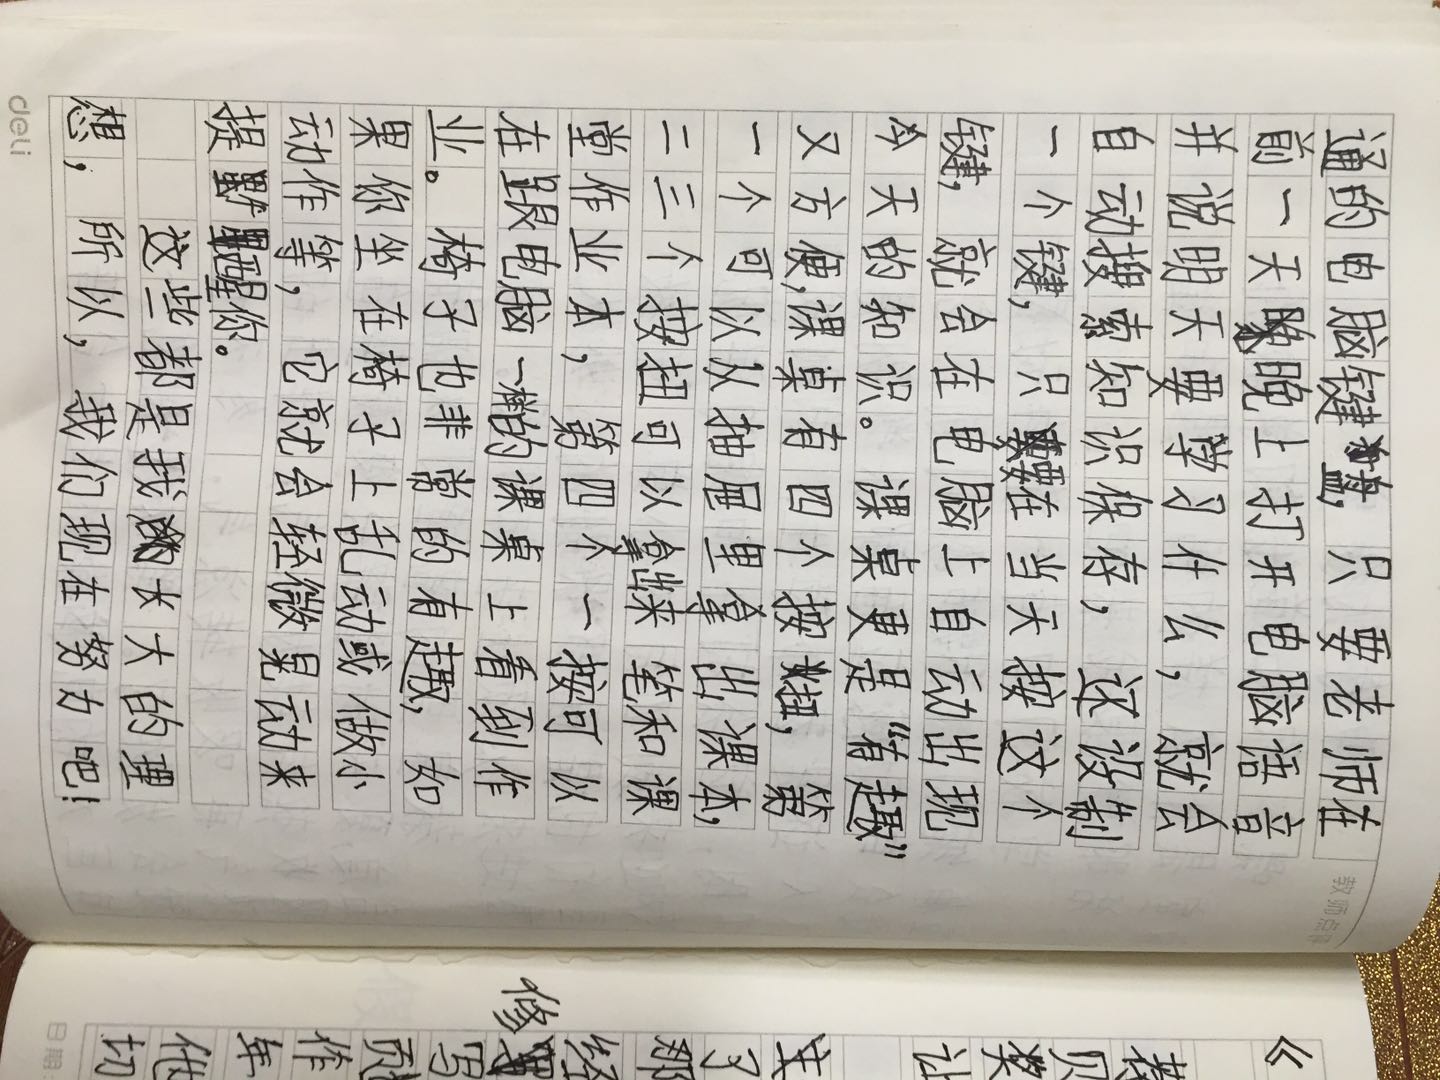 通的电脑键盘,只要老师在
前一天晚上打开电脑语音
并说明天要学习什么,就会
自动搜索知识保存,这设制
一个键,只要在当天按这个
键,就会在电脑上自动出现
今天的知识。课桌更是“有趣”
又方便,课桌有四个按扭,第
一个可以从抽屉里拿出课本,
二三个按扭可以拿出来笔和课
堂作业本,第四个一按可以
在跟电脑一样的课桌上看到作
业。椅子也非常的有趣,如
果你坐在椅子上乱动或做小
动作等,它就会轻微晃动来
提醒你。
这些都是我长大的理
想,所以,我们现在努力吧!
deli
教师点评
修